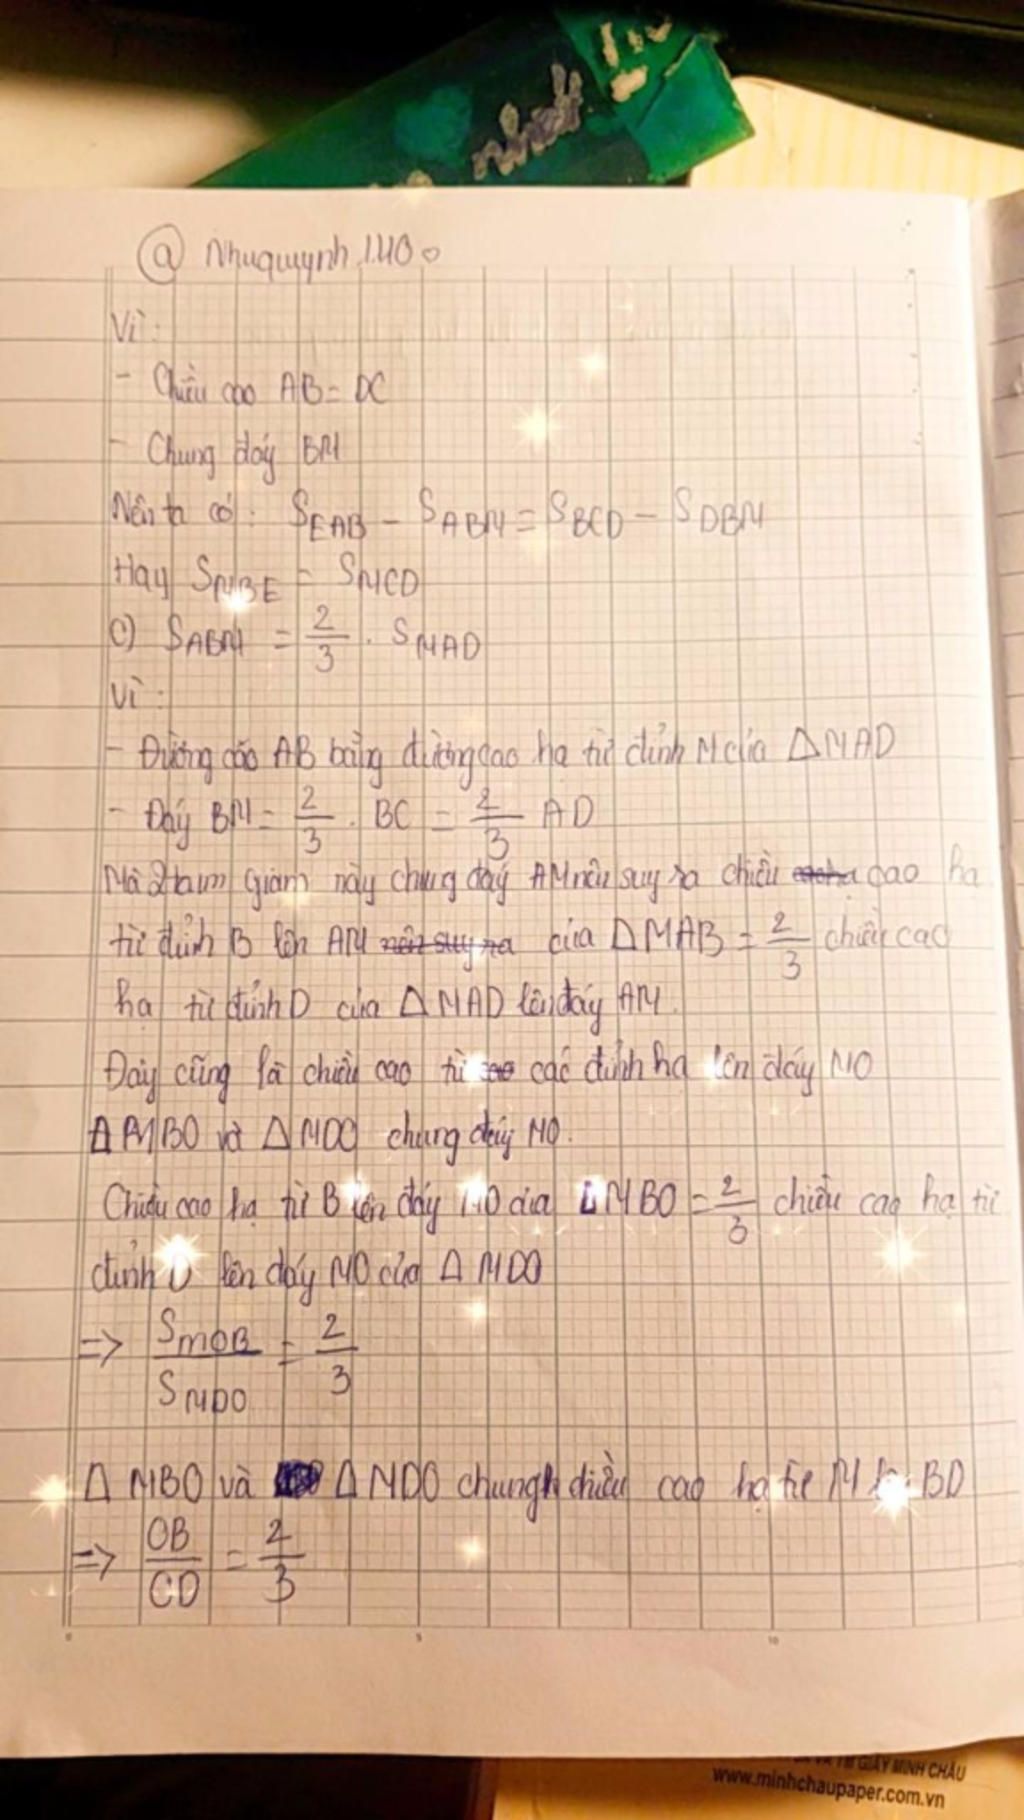 nhất
@ Nhuquynh.1410
Vì:
- Chiều cao AB = DC
- Chung đáy BM
Nên ta có: S_EAB - S_ABM = S_BCD - S_DBM
Hay S_MBE = S_MCD
c) S_ABM = 2/3 . S_MAD
Vì:
- Đường cao AB bằng đường cao hạ từ đỉnh M của △MAD
- Đáy BM = 2/3 . BC = 2/3 AD
Mà 2 tam giam này chung đáy AM nên suy ra chiều cao hạ
từ đỉnh B lên AM nên suy ra của △MAB = 2/3 chiều cao
hạ từ đỉnh D của △MAD lên đáy AM.
Đây cũng là chiều cao từ các đỉnh hạ lên đáy MO
△MBO và △MDO chung đáy MO.
Chiều cao hạ từ B lên đáy MO của △MBO = 2/3 chiều cao hạ từ
đỉnh D lên đáy MO của △MDO
=> S_MOB / S_MDO = 2/3
△MBO và △MDO chung chiều cao hạ từ M BD
=> OB/CD = 2/3
0 5 10
GIẤY MINH CHÂU
www.minhchaupaper.com.vn